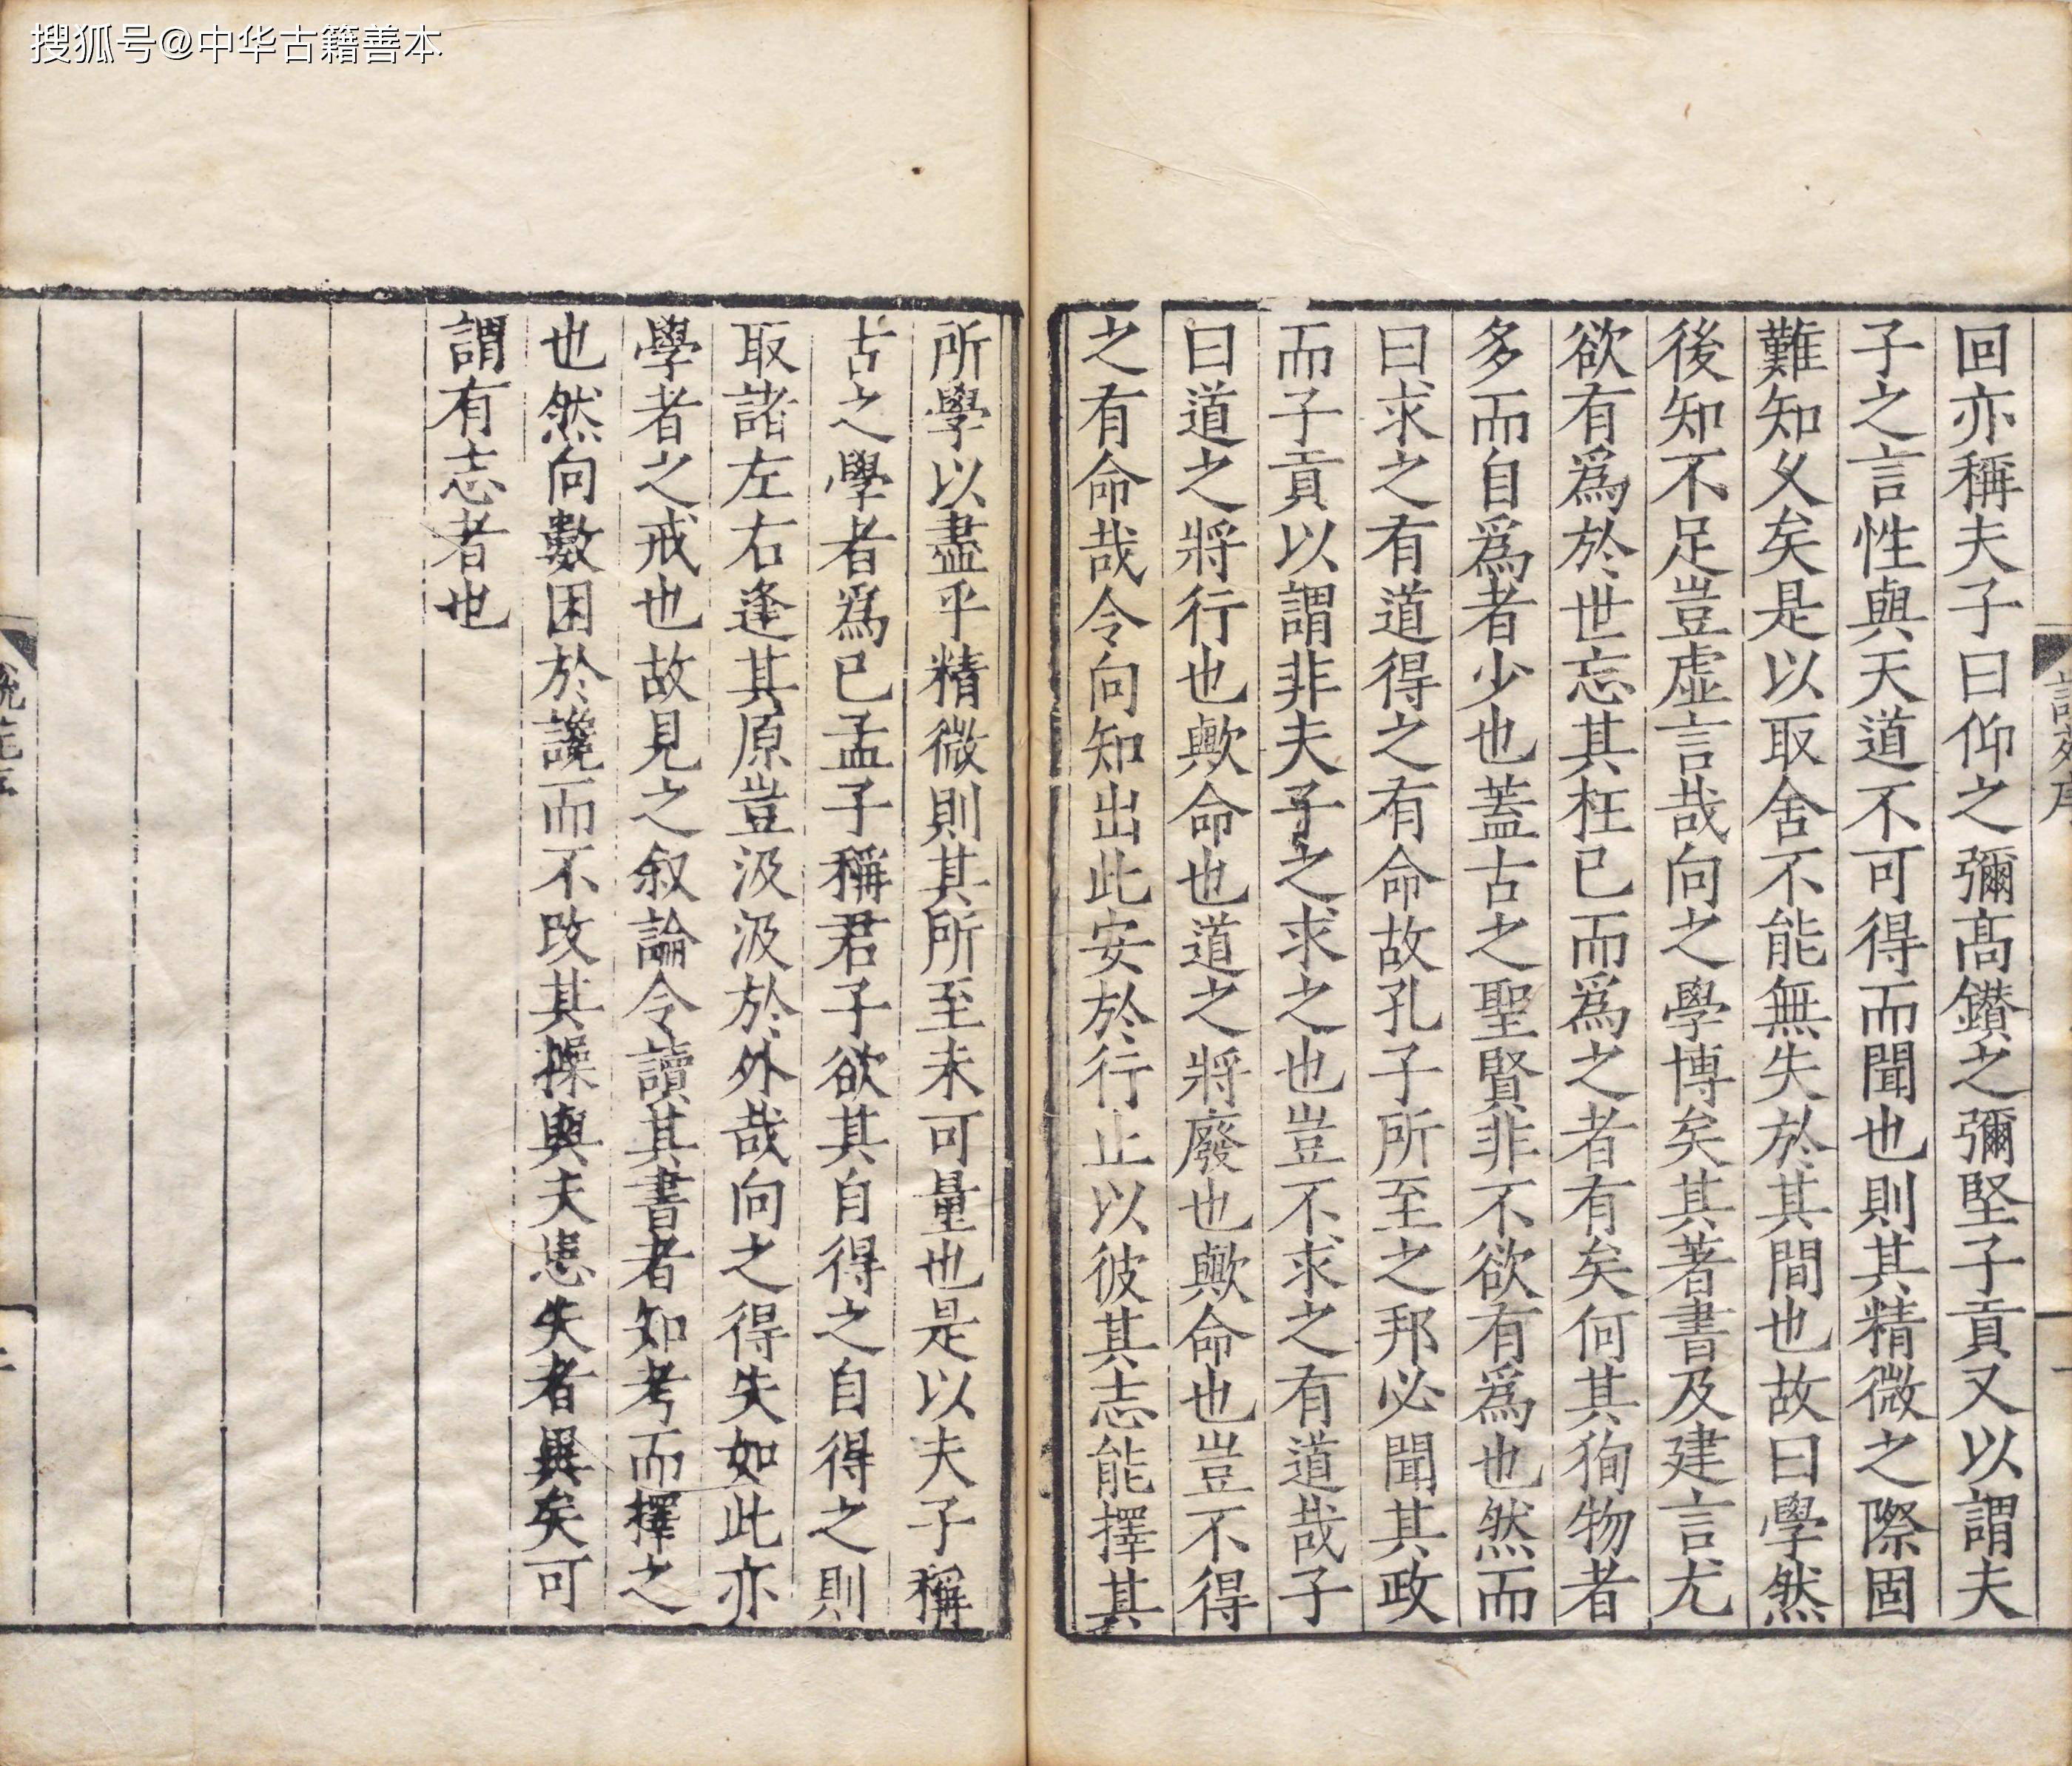 搜狐号@中华古籍善本
回亦稱夫子曰仰之彌髙鑚之彌堅子貢又以謂夫
子之言性與天道不可得而聞也則其精微之際固
難知乆矣是以取舍不能無失於其間也故曰學然
後知不足豈虚言哉向之學博矣其著書及建言尤
欲有爲於世忘其枉已而爲之者有矣何其狥物者
多而自爲者少也蓋古之聖賢非不欲有爲也然而
曰求之有道得之有命故孔子所至之邦必聞其政
而子貢以謂非夫子之求之也豈不求之有道哉子
曰道之將行也歟命也道之將廢也歟命也豈不得
之有命哉令向知出此安於行止以彼其志能擇其
所學以盡乎精微則其所至未可量也是以夫子稱
古之學者爲已孟子稱君子欲其自得之自得之則
取諸左右逢其原豈汲汲於外哉向之得失如此亦
學者之戒也故見之叙論令讀其書者知考而擇之
也然向數困於讒而不改其操與夫患失者異矣可
謂有志者也